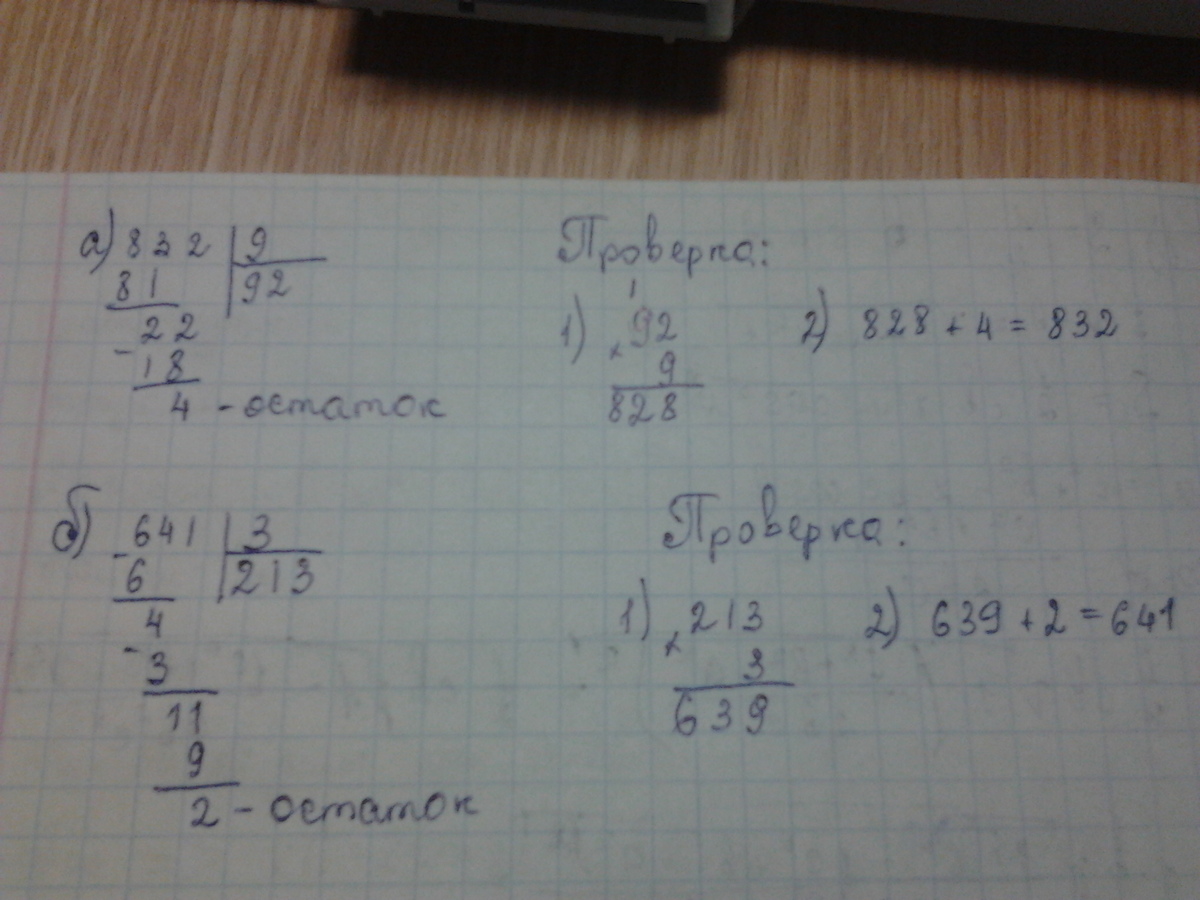 а) 832 | 9
81 | 92
- 22
18
4 - остаток
Проверка:
1) 92
× 9
828
2) 828 + 4 = 832
б) - 641 | 3
6 | 213
- 4
3
11
9
2 - остаток
Проверка:
1) × 213
3
639
2) 639 + 2 = 641